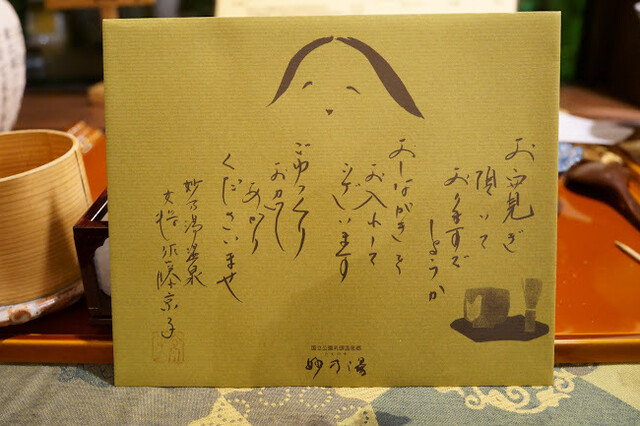 お寛ぎ
頂いて
おりますで
しょうか
おしながきを
お入れして
ございます
ごゆっくり
おめし
あがり
くださいませ
妙乃湯温泉
女将 佐藤京子
妙乃湯